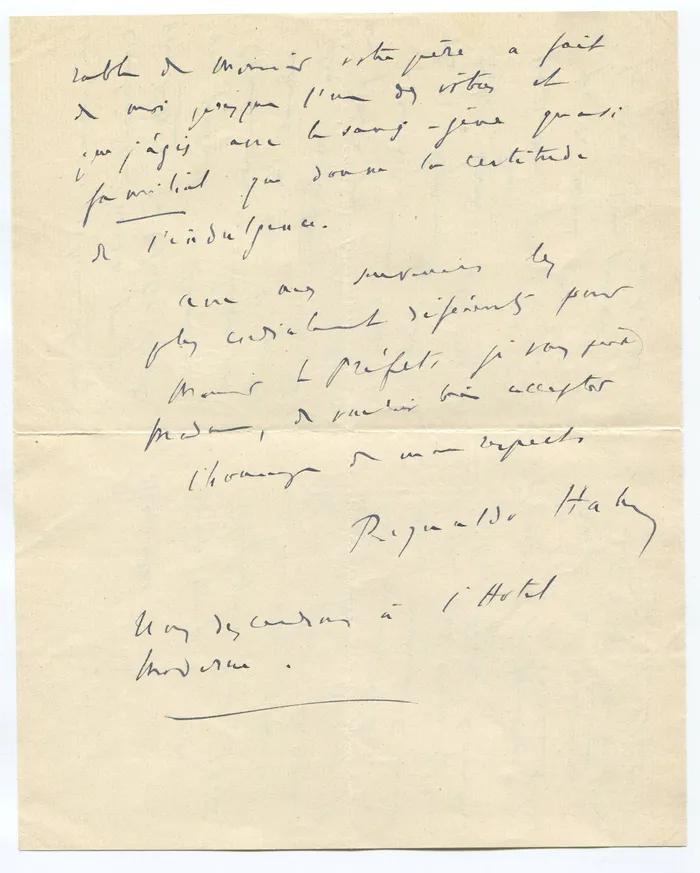 rable de Monsieur votre père a fait
de moi presque l'un des vôtres et
que j'agis avec le sans-gêne quasi
familial que donne la certitude
de l'indulgence.
Avec mes souvenirs les
plus cordialement déférents pour
Monsieur le Préfet, je vous prie
Madame, de vouloir bien accepter
l'hommage de mon respect.
Reynaldo Hahn
Nous descendrons à l'Hotel
Moderne.